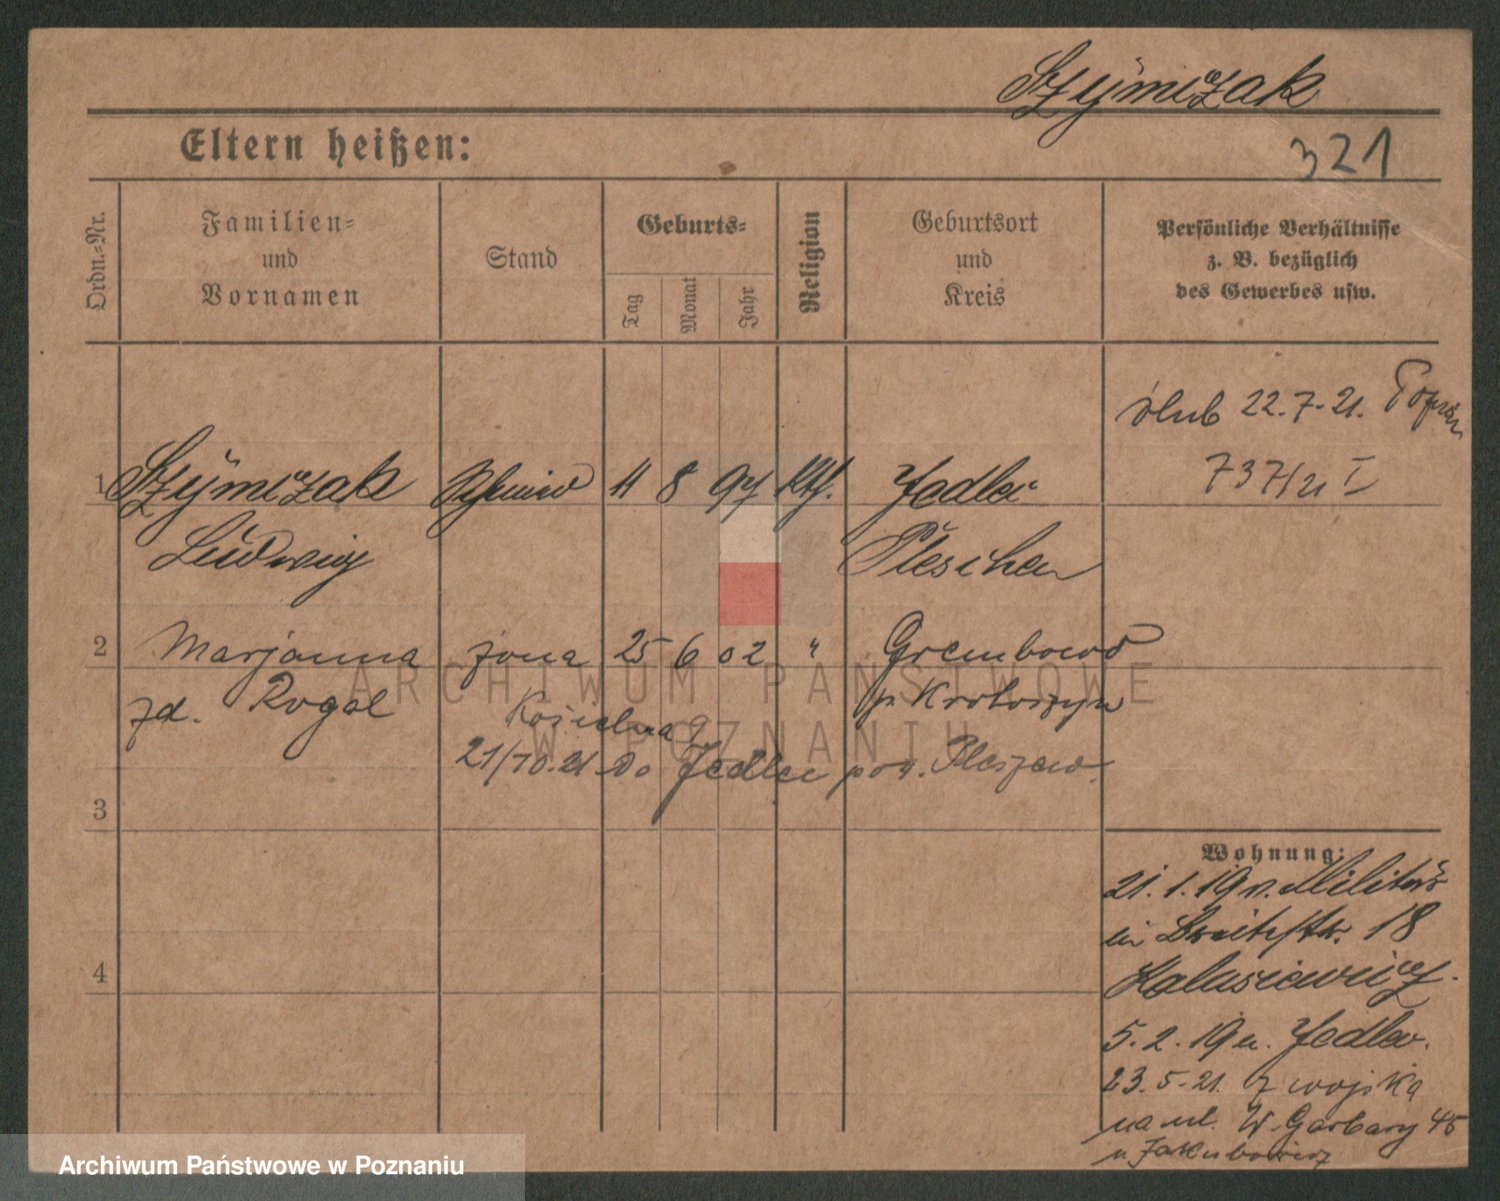 Szymczak
321
Eltern heißen:
Ordn.-Nr.
Familien-
und
Vornamen
Stand
Geburts-
Tag
Monat
Jahr
Religion
Geburtsort
und
Kreis
Persönliche Verhältnisse
z. B. bezüglich
des Gewerbes usw.
ślub 22.7.21.
737/21 I
1 Szymczak 11 8 97 Kth. Jedlec
Ludwig Pleschen
2 Marjanna żona 25 6 02 " Grembowo
zd. Rogal p. Krotoszyn
21/10.21 do Jedlec pow. Pleszew.
3
Wohnung:
21.1.19 v. Militär
in Breitestr. 18
5.2.19 n. Jedlec.
23.5.21. z wojska
na ul. W. Garbary 45
u. Jakubowicz
4
ARCHIWUM PAŃSTWOWE
W POZNANIU
Archiwum Państwowe w Poznaniu